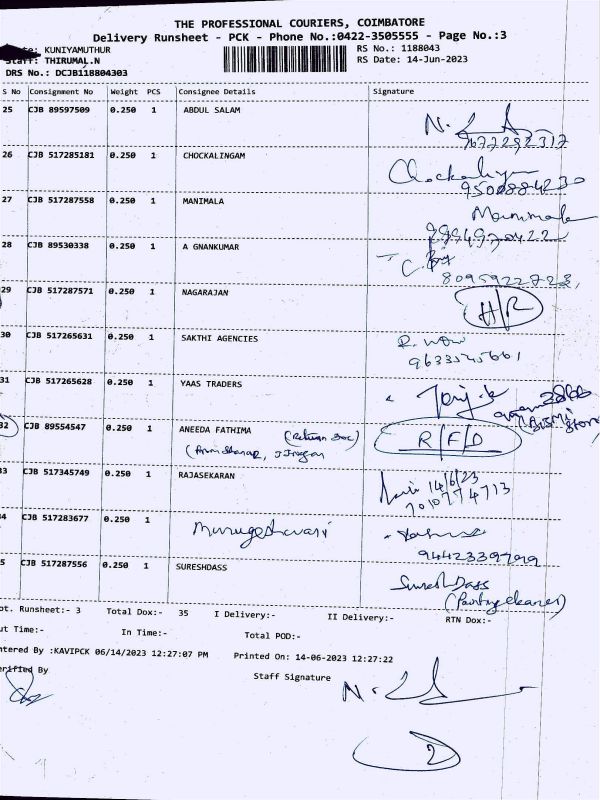 THE PROFESSIONAL COURIERS, COIMBATORE
Delivery Runsheet - PCK - Phone No.:0422-3505555 - Page No.:3
KUNIYAMUTHUR RS No.: 1188043
THIRUMAL.N RS Date: 14-Jun-2023
DRS No.: DCJB118804303
S No Consignment No Weight PCS Consignee Details Signature
25 CJB 89597509 0.250 1 ABDUL SALAM
26 CJB 517285181 0.250 1 CHOCKALINGAM
9500884230
27 CJB 517287558 0.250 1 MANIMALA Manimala
28 CJB 89530338 0.250 1 A GNANKUMAR
8095922723
29 CJB 517287571 0.250 1 NAGARAJAN H/R
30 CJB 517265631 0.250 1 SAKTHI AGENCIES
31 CJB 517265628 0.250 1 YAAS TRADERS
32 CJB 89554547 0.250 1 ANEEDA FATHIMA (Return Doc) R/F/D
33 CJB 517345749 0.250 1 RAJASEKARAN 14/6/23
7010774713
4 CJB 517283677 0.250 1 Murugeshwari
9442339799
5 CJB 517287556 0.250 1 SURESHDASS SureshDass
ot. Runsheet:- 3 Total Dox:- 35 I Delivery:- II Delivery:- RTN Dox:-
ut Time:- In Time:- Total POD:-
ntered By :KAVIPCK 06/14/2023 12:27:07 PM Printed On: 14-06-2023 12:27:22
erified By Staff Signature
2